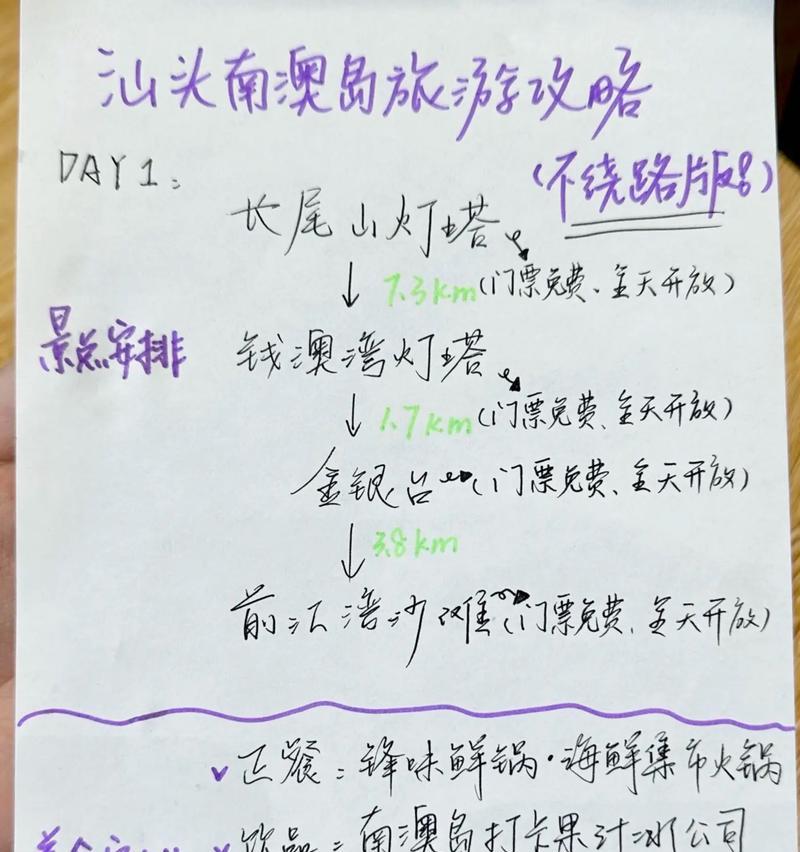 汕头南澳岛旅游攻略
DAY1:
(不绕路版图)
长尾山灯塔
7.3km(门票免费、全天开放)
景点安排
钱澳湾灯塔
1.7km(门票免费、全天开放)
金银台(门票免费、全天开放)
3.8km
前江湾沙滩(门票免费、全天开放)
正餐:锋味鲜锅·海鲜集市火锅
饮品:南澳岛打卡果汁冰公司